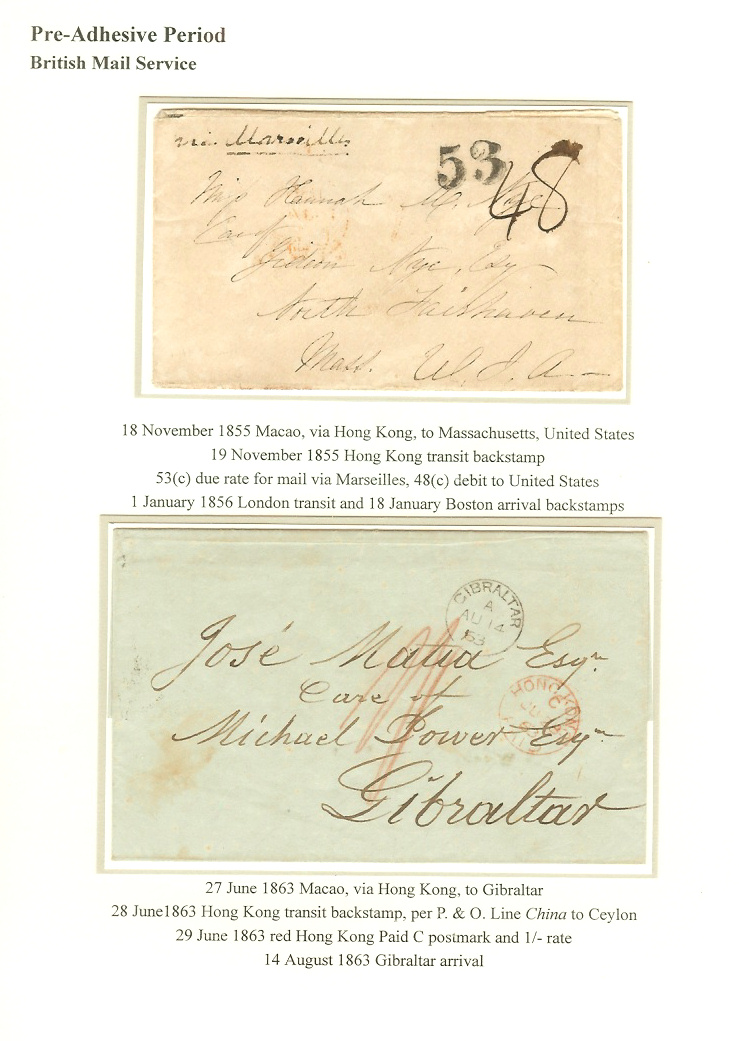 Pre-Adhesive Period
British Mail Service
via Marseilles
53
48
Miss Hannah M. Nye
Care of
Gideon Nye, Esq
North Fairhaven
Mass. U.S.A.
18 November 1855 Macao, via Hong Kong, to Massachusetts, United States
19 November 1855 Hong Kong transit backstamp
53(c) due rate for mail via Marseilles, 48(c) debit to United States
1 January 1856 London transit and 18 January Boston arrival backstamps
GIBRALTAR
A
AU 14
63
José Esqre.
Care of
HONG KONG
C
Michael Power Esqre.
Gibraltar
27 June 1863 Macao, via Hong Kong, to Gibraltar
28 June1863 Hong Kong transit backstamp, per P. & O. Line China to Ceylon
29 June 1863 red Hong Kong Paid C postmark and 1/- rate
14 August 1863 Gibraltar arrival